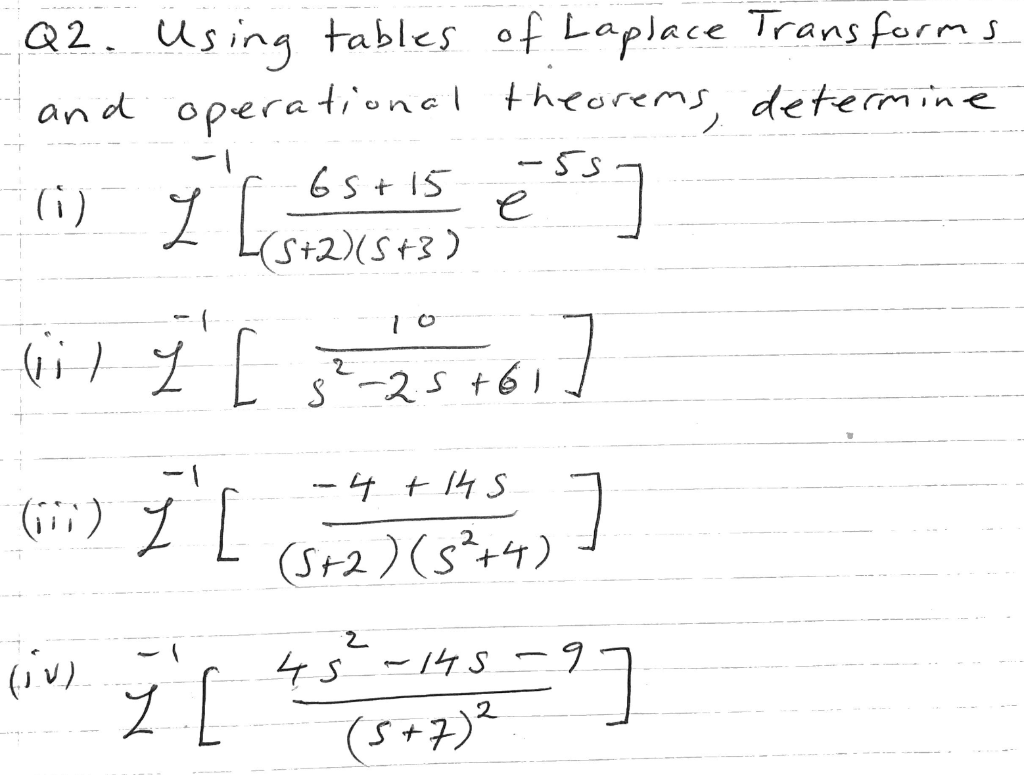 Q2. Using tables of Laplace Transforms
and operational theorems, determine
(i) ℒ⁻¹[ (6s+15)/((s+2)(s+3)) e^(-5s) ]
(ii) ℒ⁻¹[ 10/(s²-2s+61) ]
(iii) ℒ⁻¹[ (-4+14s)/((s+2)(s²+4)) ]
(iv) ℒ⁻¹[ (4s²-14s-9)/((s+7)²) ]